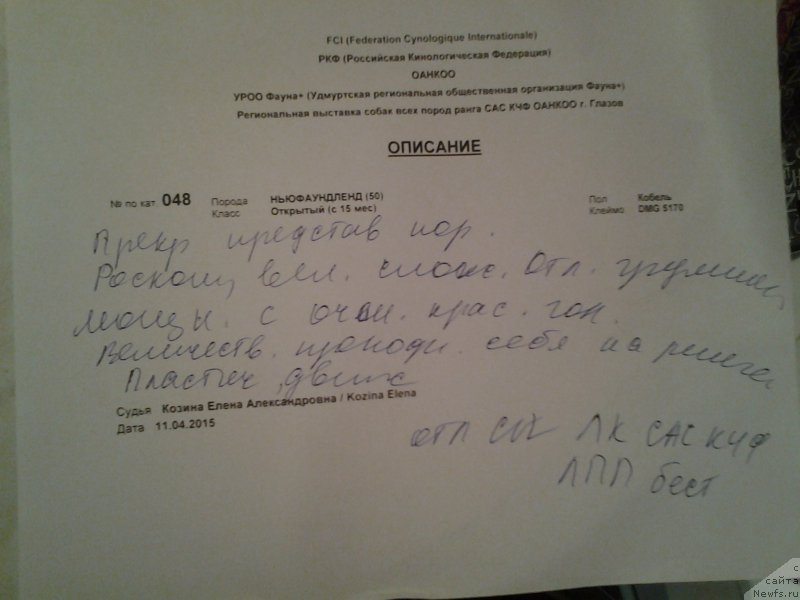 FCI (Federation Cynologique Internationale)
РКФ (Российская Кинологическая Федерация)
ОАНКОО
УРОО Фауна+ (Удмуртская региональная общественная организация Фауна+)
Региональная выставка собак всех пород ранга САС КЧФ ОАНКОО г. Глазов
ОПИСАНИЕ
№ по кат. 048 Порода НЬЮФАУНДЛЕНД (50) Пол Кобель
Класс Открытый (с 15 мес) Клеймо DMG 5170
Прекр представ пор.
Роскош, вел. слож. Отл. груминг
Мощн. с очен. крас. гол.
Величеств. себя на ринге
Пластич, движ
Судья Козина Елена Александровна / Kozina Elena
Дата 11.04.2015
отл CW ЛК САС КЧФ
ЛПП бест
с
сайта
Newfs.ru